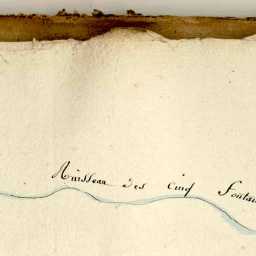 Ruisseau des Cinq Fontai